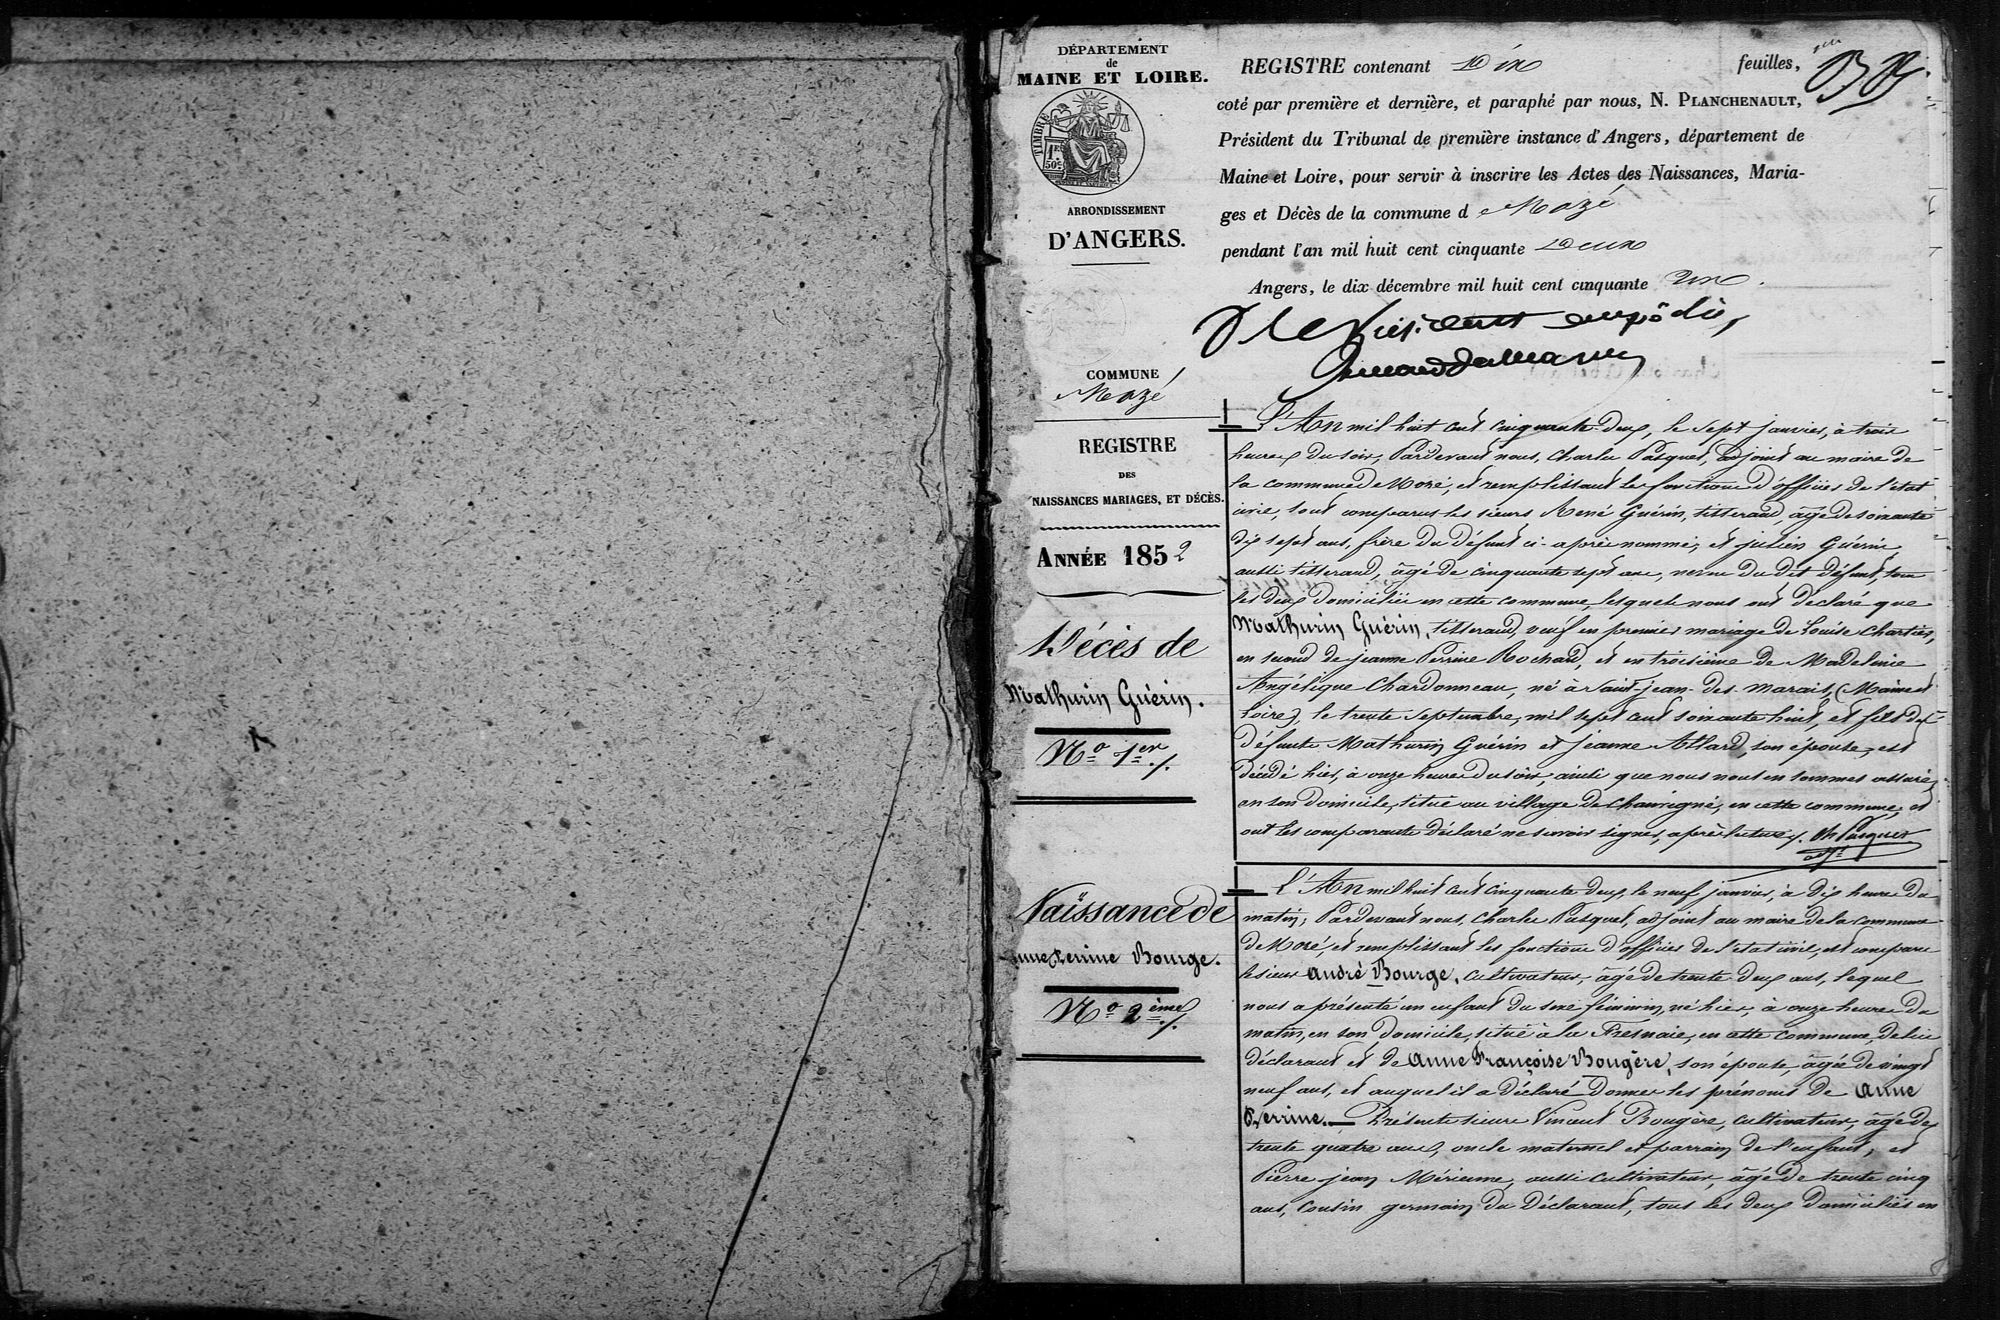 DÉPARTEMENT
de
MAINE ET LOIRE.
TIMBRE
1F.
50C.
ARRONDISSEMENT
D'ANGERS.
COMMUNE
Mozé
REGISTRE
DES
NAISSANCES MARIAGES, ET DÉCÈS.
ANNÉE 1852
REGISTRE contenant Dix feuilles,
coté par première et dernière, et paraphé par nous, N. PLANCHENAULT,
Président du Tribunal de première instance d'Angers, département de
Maine et Loire, pour servir à inscrire les Actes des Naissances, Maria-
ges et Décès de la commune d e Mozé
pendant l'an mil huit cent cinquante Deux
Angers, le dix décembre mil huit cent cinquante un.
P le Président empêché,
Décès de
Mathurin Guérin.
No 1er /.
L'An mil huit cent cinquante deux, le sept janvier, à trois
heures du soir, Pardevant nous, Charles Pasquet, adjoint au maire de
la commune de Mozé, et remplissant les fonctions d'officier de l'état
civil, sont comparus les sieurs René Guérin, tisserand, âgé de soixante
dix sept ans, frère du défunt ci-après nommé, et julien Guérin,
aussi tisserand, âgé de cinquante sept ans, neveu du dit défunt, tous
les deux domiciliés en cette commune, lesquels nous ont déclaré que
Mathurin Guérin, tisserand, veuf en premier mariage de Louise Chartier,
en second de jeanne Perrine Rochard, et en troisième de Madeleine
Angélique Chardonneau, né à Saint-jean-des-marais, (Maine et
Loire), le trente Septembre, mil sept cent soixante huit, et fils des
défunts Mathurin Guérin et jeanne Allard, son épouse, est
décédé hier, à onze heures du soir, ainsi que nous nous en sommes assuré,
en son domicile, situé au village de Chauvigné, en cette commune, et
ont les comparants déclaré ne savoir signer, après lecture /. Ch Pasquet
adjt
Naissance de
Anne Perrine Bourge.
No 2ème /.
L'An mil huit cent cinquante deux, le neuf janvier, à dix heures du
matin; Pardevant nous, Charles Pasquet, adjoint au maire de la commune
de Mozé, et remplissant les fonctions d'officier de l'état civil, est comparu
le sieur André Bourge, cultivateur, âgé de trente deux ans, lequel
nous a présenté un enfant du sexe féminin, né hier, à onze heures du
matin, en son domicile, situé à la Fresnaie, en cette commune, de lui
déclarant et de Anne Françoise Bougère, son épouse, âgée de vingt
neuf ans, et auquel il a déclaré donner les prénoms de Anne
Perrine. Présents sieurs Vincent Bougère, cultivateur, âgé de
trente quatre ans, oncle maternel et parrain de l'enfant, et
Pierre jean Mérienne, aussi cultivateur, âgé de trente cinq
ans, Cousin germain du Déclarant, tous les deux domiciliés en